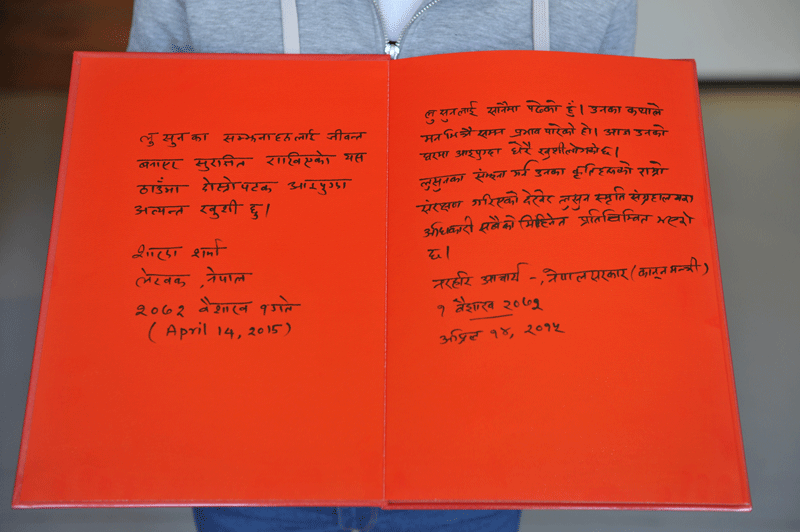 लु सुनका सम्झनाहरुलाई जीवन्त
बनाएर सुरक्षित राखिएको यस
ठाउँमा दोस्रोपटक आइपुग्दा
अत्यन्त खुसी छु।
शारदा शर्मा
लेखक, नेपाल
२०७२ वैशाख १ गते
(April 14, 2015)
लु सुनलाई सानैमा पढेको हुँ। उनका कथाले
मन भित्रैसम्म प्रभाव पारेको हो। आज उनको
घरमा आइपुग्दा धेरै खुशी लागेको छ।
लुसुनका सम्झना गर्न उनका कृतिहरुको राम्रो
संरक्षण गरिएको देखेर लुसुन स्मृति संग्रहालयका
अधिकारी सबैको मिहिनेत प्रतिबिम्बित भएको
छ।
नरहरि आचार्य -, नेपाल सरकार (कानून मन्त्री)
१ वैशाख २०७२
अप्रिल १४, २०१५